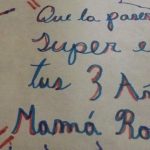 Que la pases
super e
tus 3 Añ
Mamá Ro